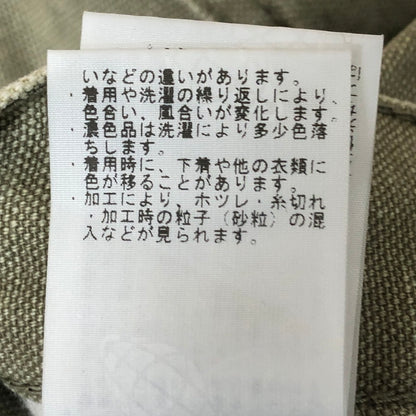 いなどの違いがあります。
・着用や洗濯の繰り返しにより、
色合い、風合いが変化します。
・濃色品は洗濯により多少色落
ちします。
・着用時に、下着や他の衣類に
色が移ることがあります。
・加工により、ホツレ・糸切れ
・加工時の粒子（砂粒）の混
入などが見られます。